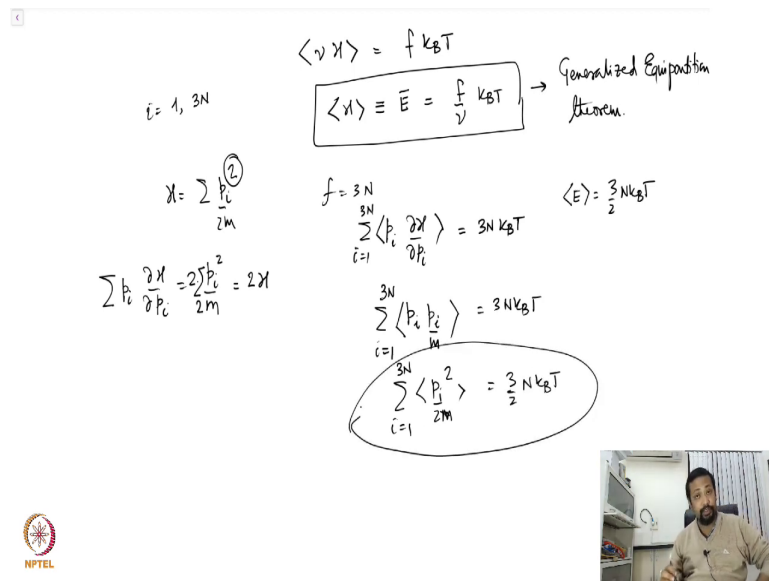 ⟨νH⟩ = f k_BT
i = 1, 3N
⟨H⟩ ≡ Ē = f/ν k_BT → Generalized Equipartition theorem.
H = Σ p_i²/2m
f = 3N
⟨E⟩ = 3/2 N k_BT
Σ_{i=1}^{3N} ⟨p_i ∂H/∂p_i⟩ = 3N k_BT
Σ p_i ∂H/∂p_i = 2Σ p_i²/2m = 2H
Σ_{i=1}^{3N} ⟨p_i p_i/m⟩ = 3N k_BT
Σ_{i=1}^{3N} ⟨p_i²/2m⟩ = 3/2 N k_BT
NPTEL